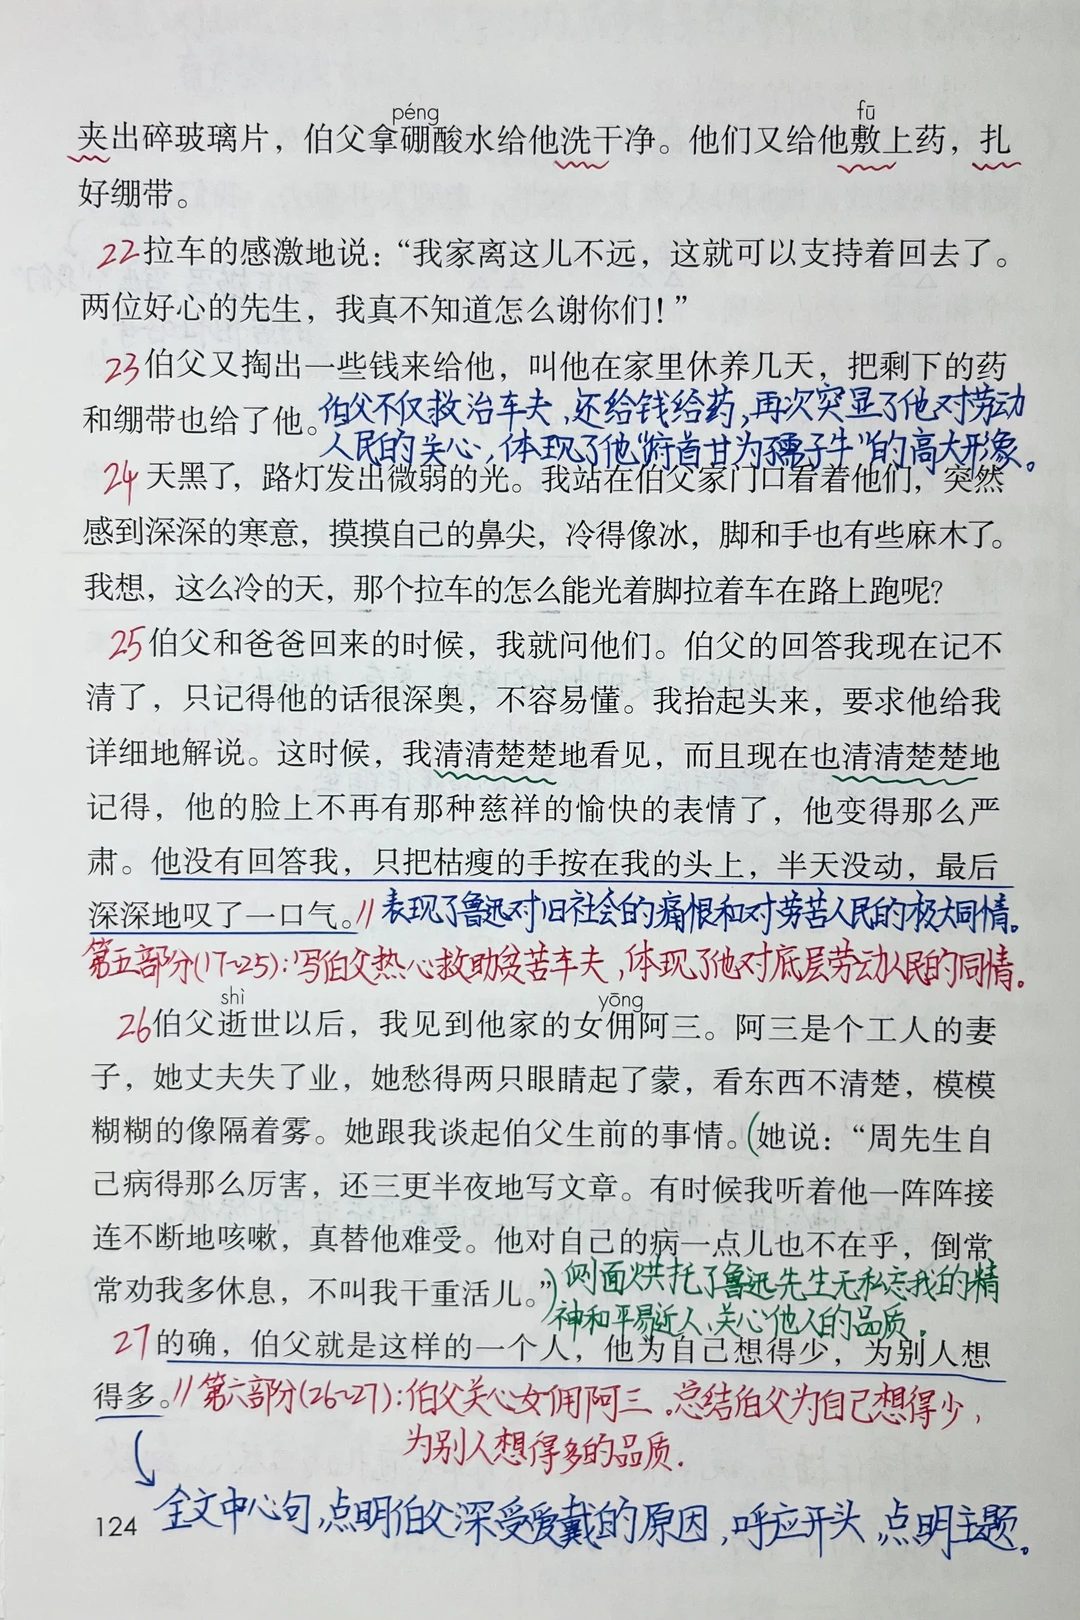 péng fū
夹出碎玻璃片，伯父拿硼酸水给他洗干净。他们又给他敷上药，扎
好绷带。
22拉车的感激地说：“我家离这儿不远，这就可以支持着回去了。
两位好心的先生，我真不知道怎么谢你们！”
23伯父又掏出一些钱来给他，叫他在家里休养几天，把剩下的药
和绷带也给了他。伯父不仅救治车夫，还给钱给药，再次突显了他对劳动
人民的关心，体现了他“俯首甘为孺子牛”的高大形象。
24天黑了，路灯发出微弱的光。我站在伯父家门口看着他们，突然
感到深深的寒意，摸摸自己的鼻尖，冷得像冰，脚和手也有些麻木了。
我想，这么冷的天，那个拉车的怎么能光着脚拉着车在路上跑呢？
25伯父和爸爸回来的时候，我就问他们。伯父的回答我现在记不
清了，只记得他的话很深奥，不容易懂。我抬起头来，要求他给我
详细地解说。这时候，我清清楚楚地看见，而且现在也清清楚楚地
记得，他的脸上不再有那种慈祥的愉快的表情了，他变得那么严
肃。他没有回答我，只把枯瘦的手按在我的头上，半天没动，最后
深深地叹了一口气。//表现了鲁迅对旧社会的痛恨和对劳苦人民的极大同情。
第五部分(17~25)：写伯父热心救助贫苦车夫，体现了他对底层劳动人民的同情。
shì yōng
26伯父逝世以后，我见到他家的女佣阿三。阿三是个工人的妻
子，她丈夫失了业，她愁得两只眼睛起了蒙，看东西不清楚，模模
糊糊的像隔着雾。她跟我谈起伯父生前的事情。(她说：“周先生自
己病得那么厉害，还三更半夜地写文章。有时候我听着他一阵阵接
连不断地咳嗽，真替他难受。他对自己的病一点儿也不在乎，倒常
常劝我多休息，不叫我干重活儿。”)侧面烘托了鲁迅先生无私忘我的精
神和平易近人、关心他人的品质。
27的确，伯父就是这样的一个人，他为自己想得少，为别人想
得多。//第六部分(26~27)：伯父关心女佣阿三。总结伯父为自己想得少，
为别人想得多的品质.
全文中心句，点明伯父深受爱戴的原因，呼应开头，点明主题。
124